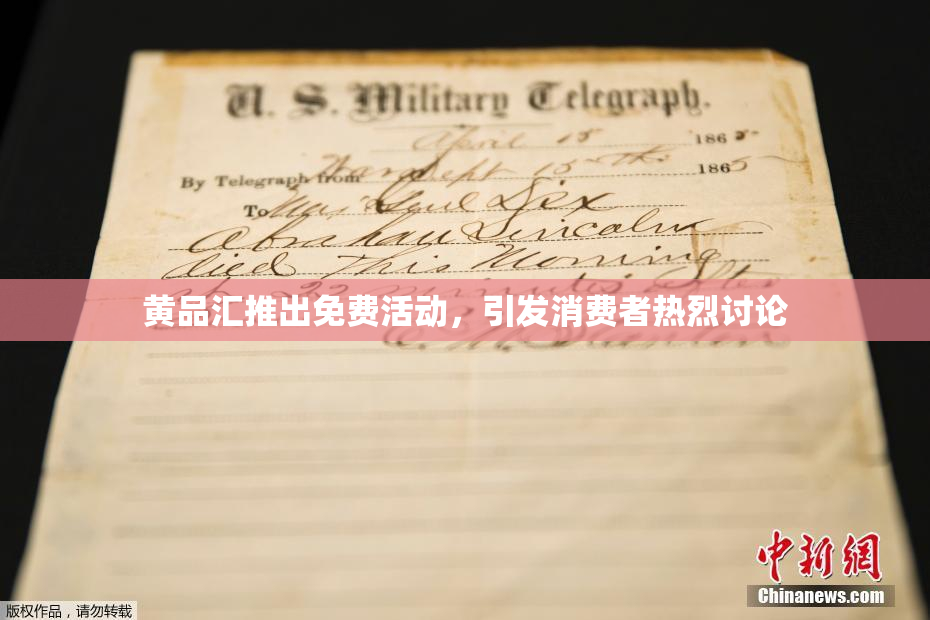 U. S. Military Telegraph.
April 15 1865.
By Telegraph from War Dept 15th 1865
To Maj Genl Dix
Abraham Lincoln
died This Morning
at 22 minutes after
黄品汇推出免费活动，引发消费者热烈讨论
E. M. Stanton
中新网
Chinanews.com
版权作品，请勿转载